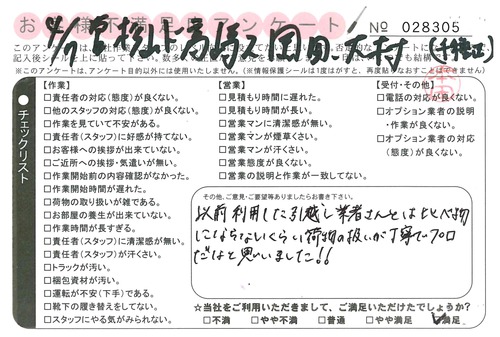 お客様不満足度アンケート
No 028305
【作業】
□責任者の対応(態度)が良くない。
□他のスタッフの対応(態度)が良くない。
□作業を見ていて不安がある。
□責任者(スタッフ)に好感が持てない。
□お客様への挨拶が出来ていない。
□ご近所への挨拶・気遣いが無い。
□作業開始前の内容確認がなかった。
□作業開始時間が遅れた。
□荷物の取り扱いが雑である。
□お部屋の養生が出来ていない。
□作業時間が長すぎる。
□責任者(スタッフ)に清潔感が無い。
□責任者(スタッフ)が汗くさい。
□トラックが汚い。
□梱包資材が汚い。
□運転が不安(下手)である。
□靴下の履き替えをしてない。
□スタッフにやる気がみられない。
【営業】
□見積もり時間に遅れた。
□見積もり時間が長い。
□営業マンに清潔感が無い。
□営業マンが煙草くさい。
□営業マンが汗くさい。
□営業態度が良くない。
□営業の説明と作業が一致してない。
【受付・その他】
□電話の対応が良くない。
□オプション業者の説明
・作業が良くない。
□オプション業者の対応
(態度)が良くない。
チェックリスト
その他、ご意見・ご要望等ありましたらお書き下さい。
以前利用した引越し業者さんとは比べ物
にならないくらい荷物の扱いが丁寧でプロ
だなと思いました!!
☆当社をご利用いただきまして、ご満足いただけたでしょうか?
□不満 □やや不満 □普通 □やや満足 □満足